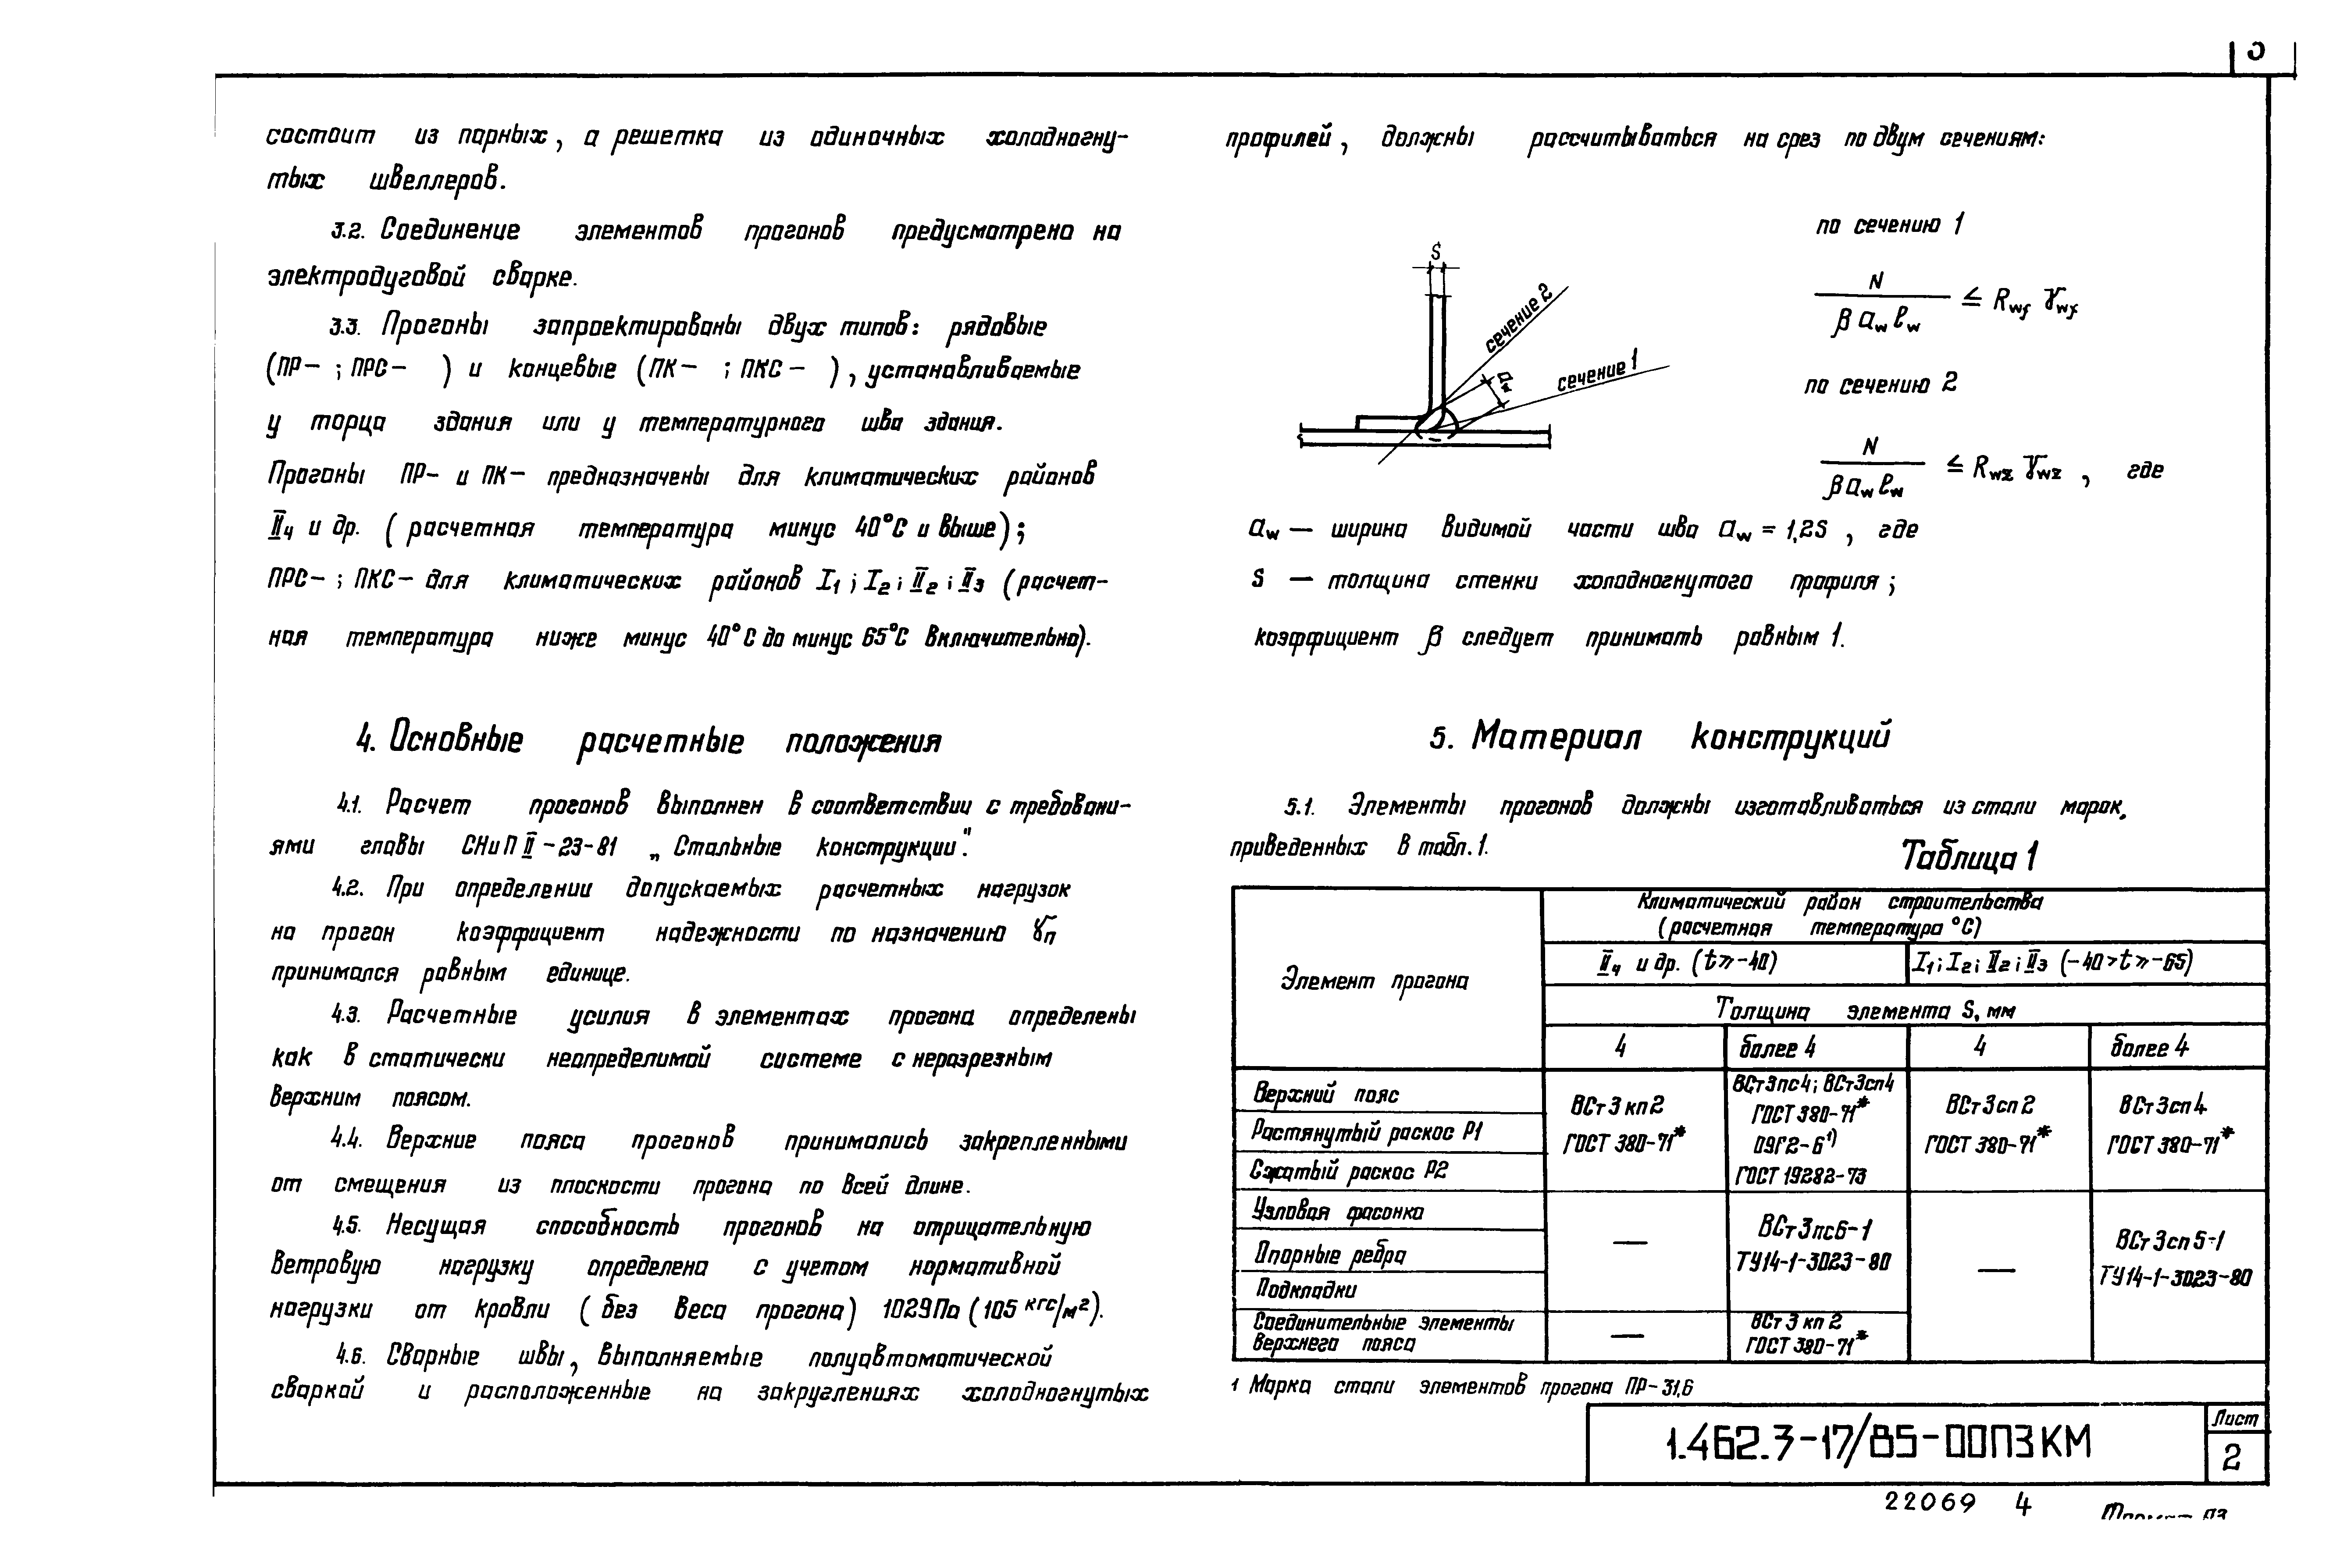 состоит из парных, а решетка из одиночных холодногну-
тых швеллеров.
3.2. Соединение элементов прогонов предусмотрено на
электродуговой сварке.
3.3. Прогоны запроектированы двух типов: рядовые
(ПР– ; ПРС– ) и концевые (ПК– ; ПКС– ), устанавливаемые
у торца здания или у температурного шва здания.
Прогоны ПР– и ПК– предназначены для климатических районов
II₄ и др. (расчетная температура минус 40°С и выше);
ПРС– ; ПКС– для климатических районов I₁; I₂; II₂; II₃ (расчет-
ная температура ниже минус 40°С до минус 65°С включительно).
4. Основные расчетные положения
4.1. Расчет прогонов выполнен в соответствии с требовани-
ями главы СНиП II-23-81 „Стальные конструкции".
4.2. При определении допускаемых расчетных нагрузок
на прогон коэффициент надежности по назначению γп
принимался равным единице.
4.3. Расчетные усилия в элементах прогона определены
как в статически неопределимой системе с неразрезным
верхним поясом.
4.4. Верхние пояса прогонов принимались закрепленными
от смещения из плоскости прогона по всей длине.
4.5. Несущая способность прогонов на отрицательную
ветровую нагрузку определена с учетом нормативной
нагрузки от кровли (без веса прогона) 1029Па (105 кгс/м²).
4.6. Сварные швы, выполняемые полуавтоматической
сваркой и расположенные на закруглениях холодногнутых
профилей, должны рассчитываться на срез по двум сечениям:
S
сечение 2
сечение 1
aw
по сечению 1
N
β aw ℓw
≤ Rwf γwf
по сечению 2
N
β aw ℓw
≤ Rwz γwz , где
aw – ширина видимой части шва aw = 1,2S , где
S – толщина стенки холодногнутого профиля;
коэффициент β следует принимать равным 1.
5. Материал конструкций
5.1. Элементы прогонов должны изготавливаться из стали марок,
приведенных в табл.1.
Таблица 1
Элемент прогона
Климатический район строительства
(расчетная температура °С)
II₄ и др. (t ⩾ -40)
I₁; I₂; II₂; II₃ (-40 > t ⩾ -65)
Толщина элемента S, мм
4
более 4
4
более 4
Верхний пояс
Растянутый раскос Р1
Сжатый раскос Р2
ВСт3кп2
ГОСТ 380-71*
ВСт3пс4; ВСт3сп4
ГОСТ 380-71*
09Г2-6¹⁾
ГОСТ 19282-73
ВСт3сп2
ГОСТ 380-71*
ВСт3сп4
ГОСТ 380-71*
Узловая фасонка
Опорные ребра
Подкладки
—
ВСт3пс6-1
ТУ14-1-3023-80
—
ВСт3сп5-1
ТУ14-1-3023-80
Соединительные элементы
верхнего пояса
—
ВСт3кп2
ГОСТ 380-71*
1 Марка стали элементов прогона ПР-31,6
1.462.3-17/85-00ПЗКМ
Лист
2
22069 4